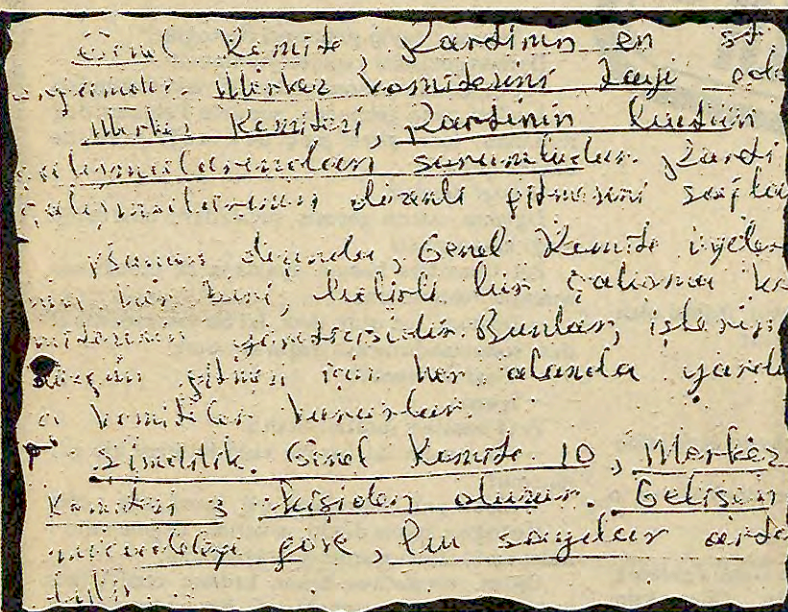 Genel Komite, Partinin en üst
Merkez komitesini tayi ede
Merkez Komitesi, Partinin bütün
çalışmalarından sorumludur. Parti
çalışmalarının düzenli gitmesini sağla
Bunun dışında, Genel Komite üyele
nin her biri, belirli bir çalışma ko
mitesinin yöneticisidir. Bunlar, işlerin
düzgün gitmesi için her alanda yardı
cı komiteler kurarlar.
Şimdilik. Genel Komite 10, Merkez
Komitesi 3 kişiden oluşur. Gelişen
mücadeleye göre, bu sayılar artı